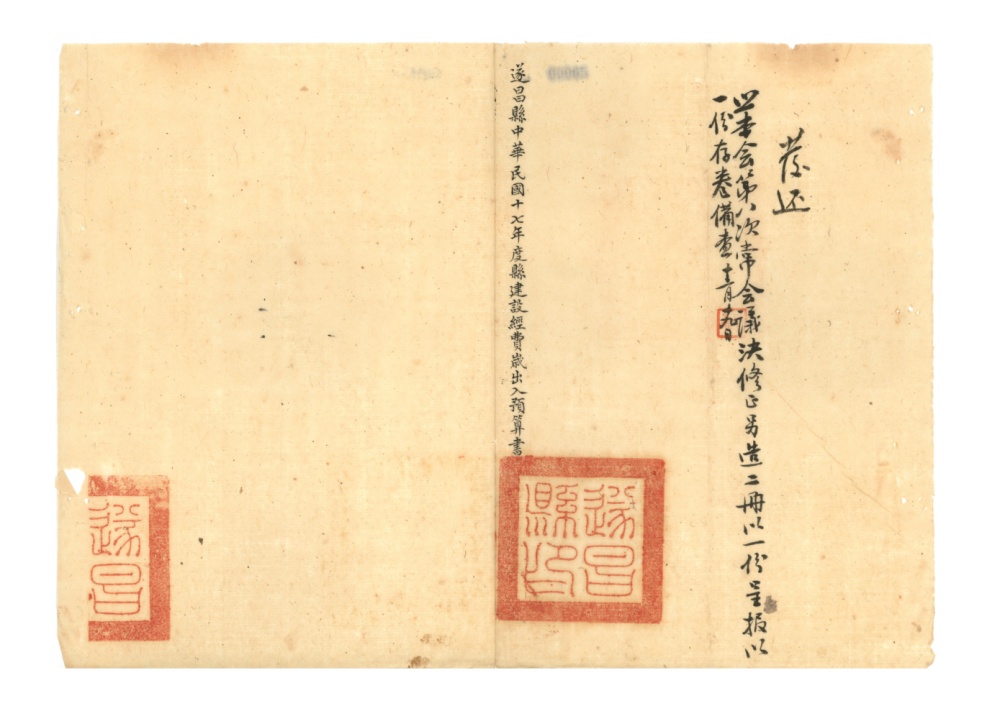 發还
照本会第八次常会議決修正另造二冊以一份呈报以
一份存卷備查 十一月九日
遂昌縣中華民國十七年度縣建設經費歲出入預算書
遂昌
縣印
遂昌